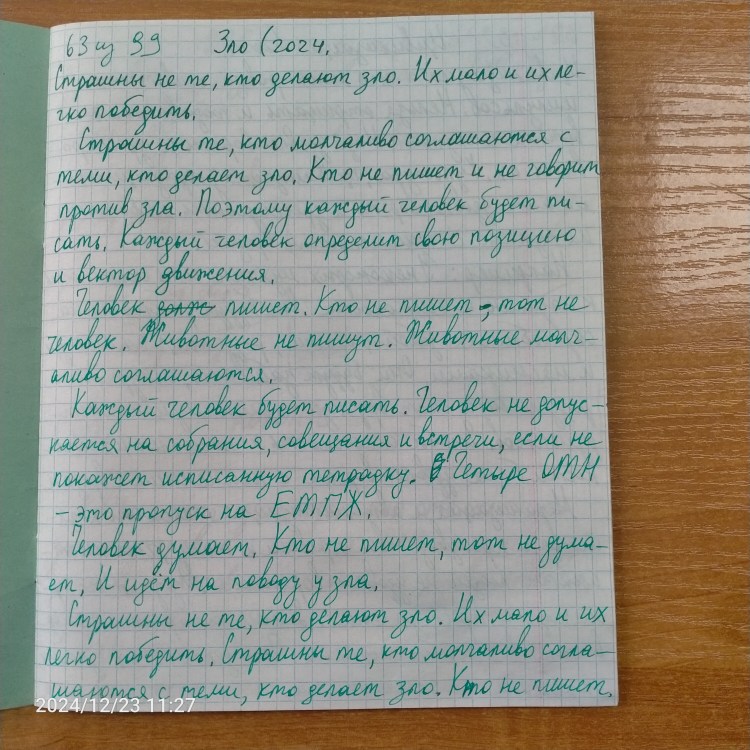 63 из 99 Зло (2024.
Страшны не те, кто делают зло. Их мало и их ле-
гко победить.
Страшны те, кто молчаливо соглашаются с
теми, кто делает зло. Кто не пишет и не говорит
против зла. Поэтому каждый человек будет пи-
сать. Каждый человек определит свою позицию
и вектор движения.
Человек долж пишет. Кто не пишет -, тот не
человек. Животные не пишут. Животные молч-
аливо соглашаются.
Каждый человек будет писать. Человек не допус-
кается на собрания, совещания и встречи, если не
покажет исписанную тетрадку. Четыре ОТН
- это пропуск на ЕТПЖ.
Человек думает. Кто не пишет, тот не дума-
ет. И идёт на поводу у зла.
Страшны не те, кто делают зло. Их мало и их
легко победить. Страшны те, кто молчаливо согла-
шаются с теми, кто делает зло. Кто не пишет,
2024/12/23 11:27